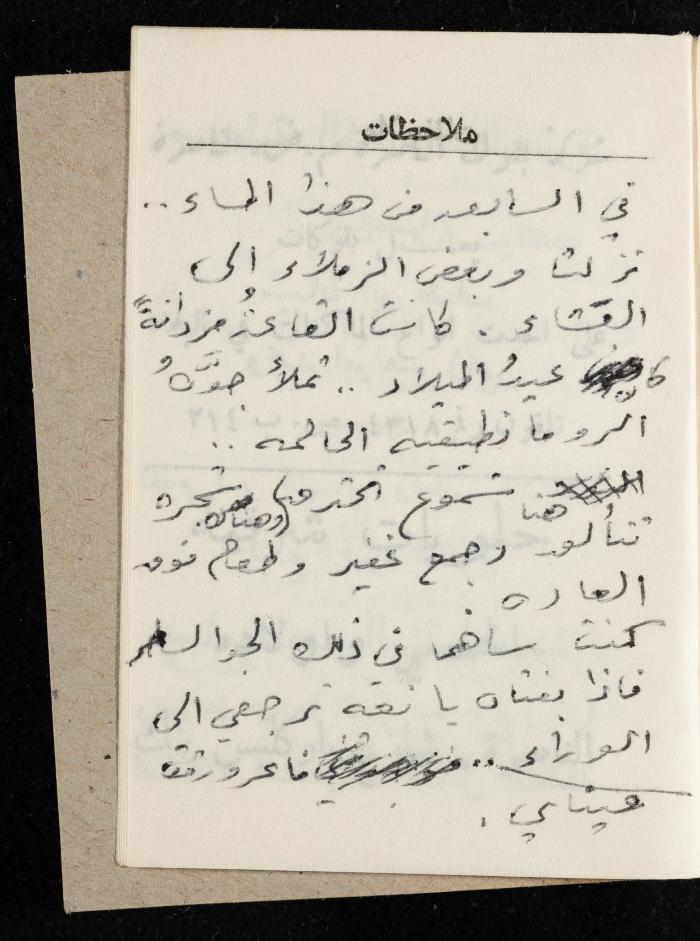 ملاحظات
في السابعة من هذا المساء ..
نزلت وبعض الزملاء الى
العَشاء . كانت القاعةُ مزدانةً
عيدُ الميلاد .. تملأ جوَّهُ
الرومانطيقية الحالمة ..
هنا شموع تحترق وهناك شجرة
تتألق وجمع غفير وطعام فوق
العادة
كنت ساهما في ذلك الجو
فاذا بفتاة يانعة ترجعني الى
الوراء .. فاغرورقت
عيناي .